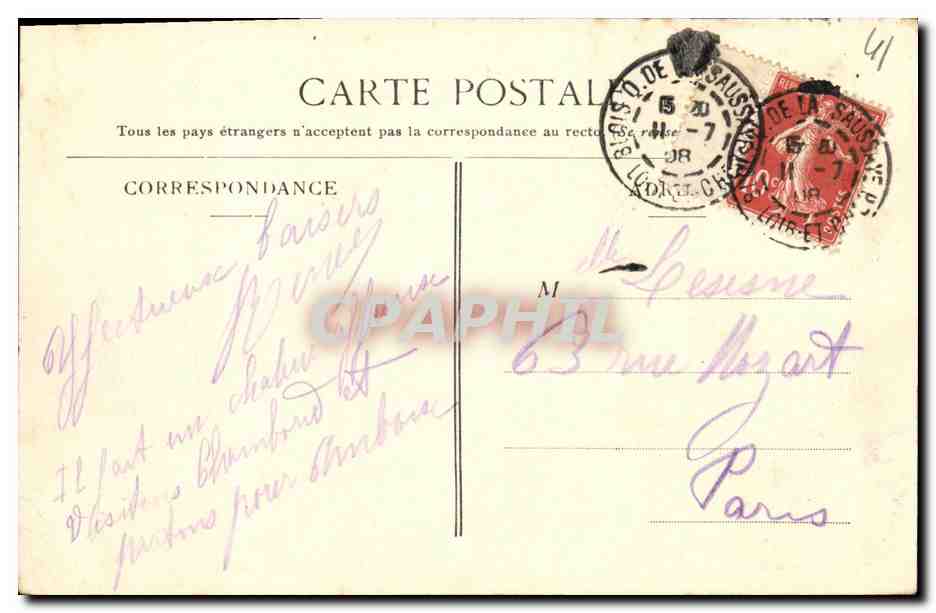 41
CARTE POSTALE
Tous les pays étrangers n'acceptent pas la correspondance au recto. Se rense
CORRESPONDANCE
BLOIS Q. DE LA SAUSSAYE
15 20
11 -7
08
LOIR-ET-CHER
DE LA SAUSSAYE
15 20
11 -7
08
LOIR-ET-CHER
Affectueux baisers
M lle Lesesne
63 rue Mozart
Paris
Il fait un chaleur affreuse
Visitons Chambord et
partons pour Amboise
CPAPHIL